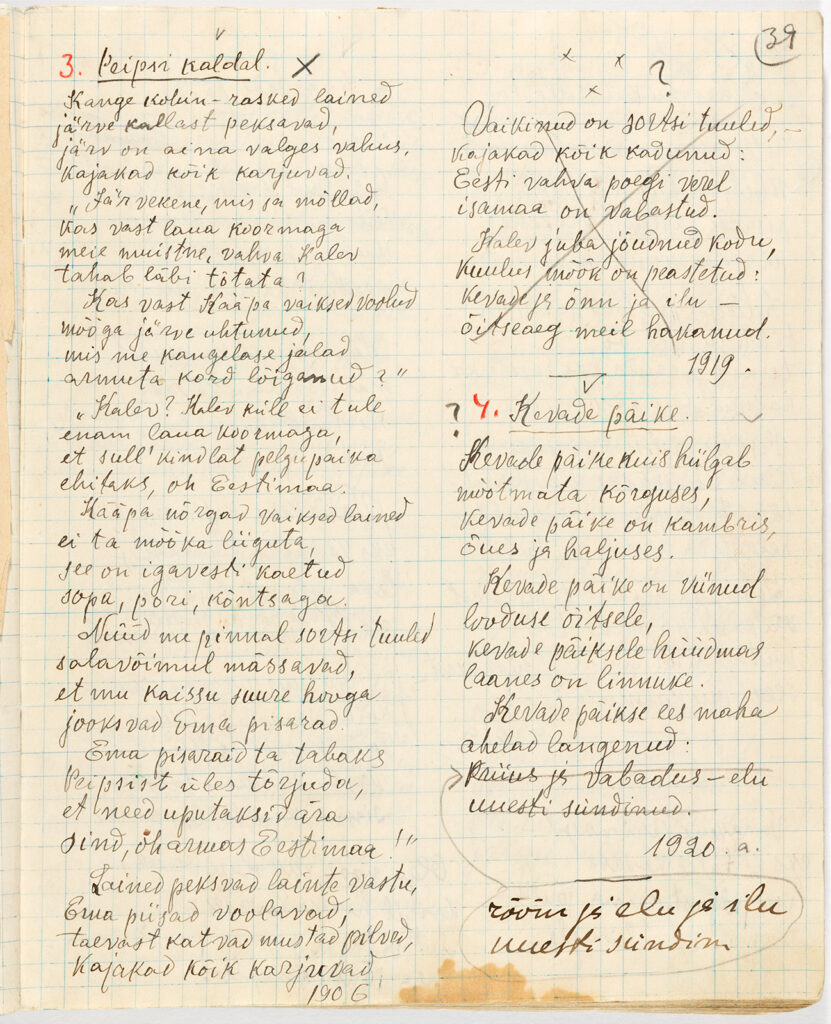 39
3. Peipsi kaldal. X
Kange kohin - rasked lained
järve kallast peksavad,
järv on aina valges vahus,
kajakad kõik karjuvad.
„Järvekene, mis sa möllad,
kas vast laua koormaga
meie muistne, vahva Kalev
tahab läbi tõtata?
Kas vast Kääpa vaiksed voolud
mõõga järve uhtunud,
mis me kangelase jalad
armuta kord lõiganud?"
„Kalev? Kalev küll ei tule
enam laua koormaga,
et sull' kindlat pelgupaika
ehitaks, oh Eestimaa.
Kääpa nõrgad vaiksed lained
ei ta mõõka liiguta,
see on igavesti kaetud
sopa, pori, kõntsaga.
Nüüd mu pinnal sortsi tuuled
salavõimul mässavad,
et mu kaissu suure hooga
jooksvad Ema pisarad.
Ema pisaraid ta tahaks
Peipsist üles tõrjuda,
et need uputaksid ära
sind, oh armas Eestimaa!"
Lained peksvad lainte vastu,
Ema piisad voolavad;
taevast katvad mustad pilved,
kajakad kõik karjuvad
1906
x x x ?
Vaikinud on sortsi tuuled, -
kajakad kõik kadunud:
Eesti vahva poegi verel
isamaa on vabastud.
Kalev juba jõudnud kodu,
kuulus mõõk on peastetud:
kevade ja õnn ja ilu -
õitseaeg meil hakanud.
1919.
? 4. Kevade päike.
Kevade päike kuis hiilgab
mõõtmata kõrguses,
kevade päike on kambris,
õues ja haljuses.
Kevade päike on viinud
looduse õitsele,
kevade päiksele hüüdmas
laanes on linnuke.
Kevade päikse ees maha
ahelad langenud:
Priius ja vabadus - elu
uuesti sündinud.
1920. a.
rõõm ja elu ja ilu
uuesti sündin